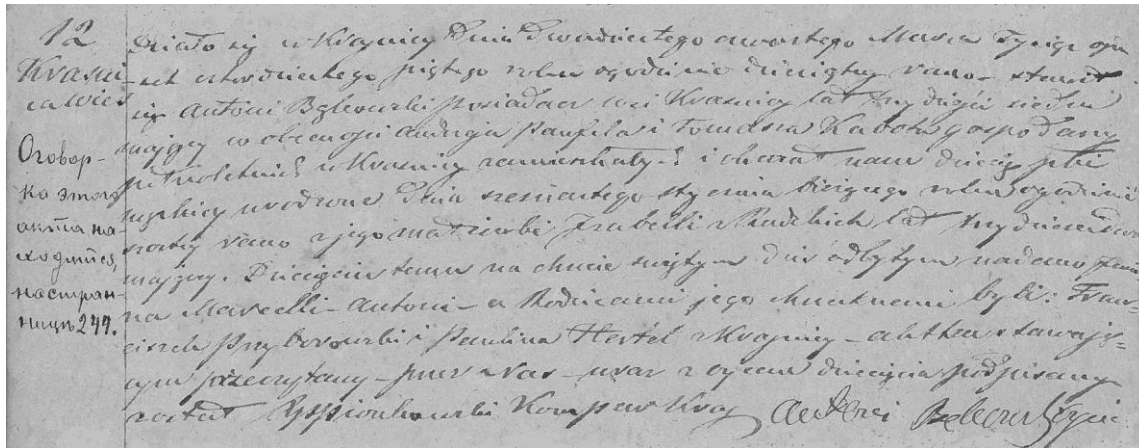 12
Krasni
ca wieś
Оговор-
ка этого
акта на-
ходится,
на стран-
ницѣ 244.
Działo się w Kraśnicy Dnia Dwudziestego czwartego Marca Tysiąc ośm
set czterdziestego piątego roku o godzinie dziesiątej rano - stawił
się Antoni posiadacz wsi Kraśnicy lat trzydzieści siedm
mający w obecności Andrzeja Panfila i Tomasza Kabota gospodarzy
pełnoletnich w Kraśnicy zamieszkałych i okazał nam dziecię płci
męzkiej urodzone dnia szesnastego stycznia bieżącego roku o godzinie
rano z jego małżonki Izabelli z Rudzkich lat trzydzieści dwa
mającej. Dziecięciu temu na chrzcie świętym dziś odbytym nadano imio
na Marcelli - Antoni - a Rodzicami jego chrzestnemi byli: Fran-
ciszek Przyborowski i Paulina Hertel z Krajnicy - akt ten stawają-
cym przeczytany - przez nas - wraz z ojcem dziecięcia podpisany
został